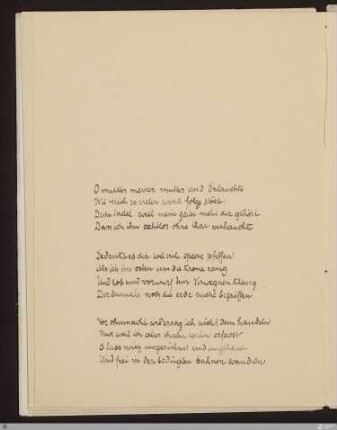 O mutter meiner mutter und Erlauchte
Wie mich so vieler worte folge stört:
Dein tadel weil mein geist nicht dir gehört
Dass ich ihn achtlos ohne that verhauchte

Gedenkt es dir wie viele speere pfiffen
Als ich im osten um die Krone rang
Und lob und vorwurf dem Verwegnen klang
Der damals noch die erde nicht begriffen

ohnmacht ich nicht dem handeln
Nur weil ich alles erfasst
O lass mich ungerühmt und ungehasst
Und frei in den bedingten bahnen wandeln